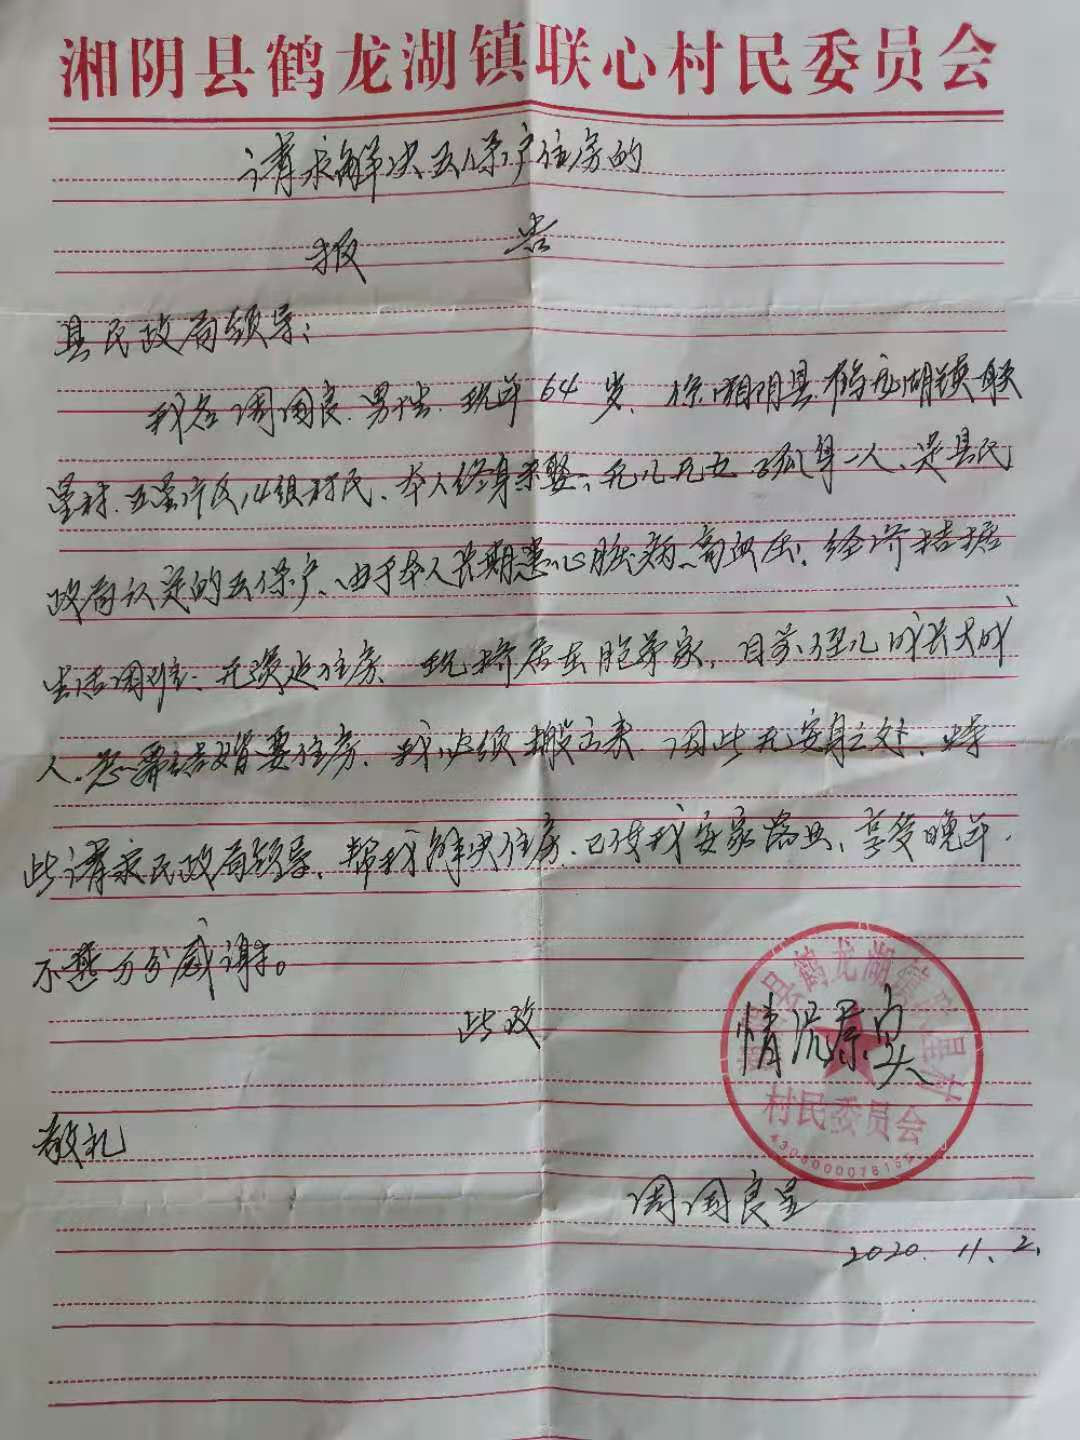 湘阴县鹤龙湖镇联心村民委员会
请求解决五保户住房的
报 告
县民政局领导:
我名周国良.男性.现年64岁、系湘阴县鹤龙湖镇联
星村.五星片区14组村民、本人终身未娶、无儿无女孤身一人、是县民
政局认定的五保户、由于本人长期患心脏病、高血压、经济拮据
生活困难、无资建住房、现挤居在胞弟家,目前侄儿成长大成
人.急需结婚要住房、我必须搬出来.因此无安身之处、特
此请求民政局领导、帮我解决住房.已使我安家落业、享受晚年.
不甚万分感谢。
此致
情况属实
敬礼
湘阴县鹤龙湖镇联星村
村民委员会
周国良呈
2020.11.2.